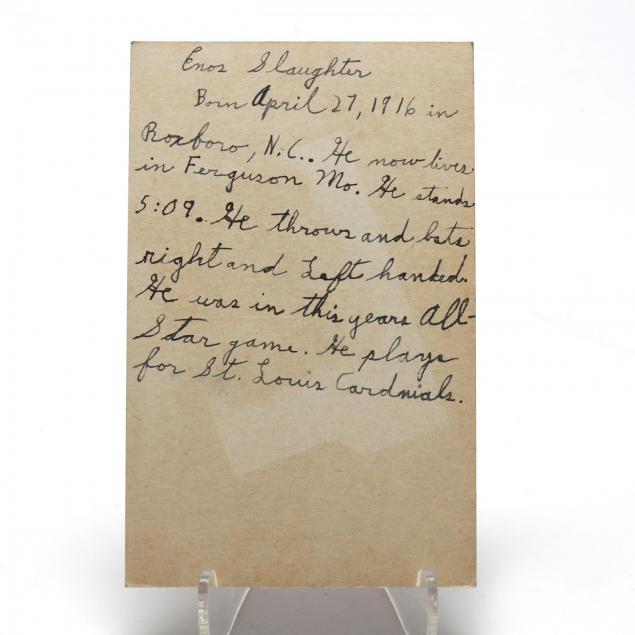 Enos Slaughter
Born April 27, 1916 in
Roxboro, N.C.. He now lives
in Ferguson Mo. He stands
5:09. He throws and bats
right and Left hanked.
He was in this years All-
Star game. He plays
for St. Louis Cardnials.